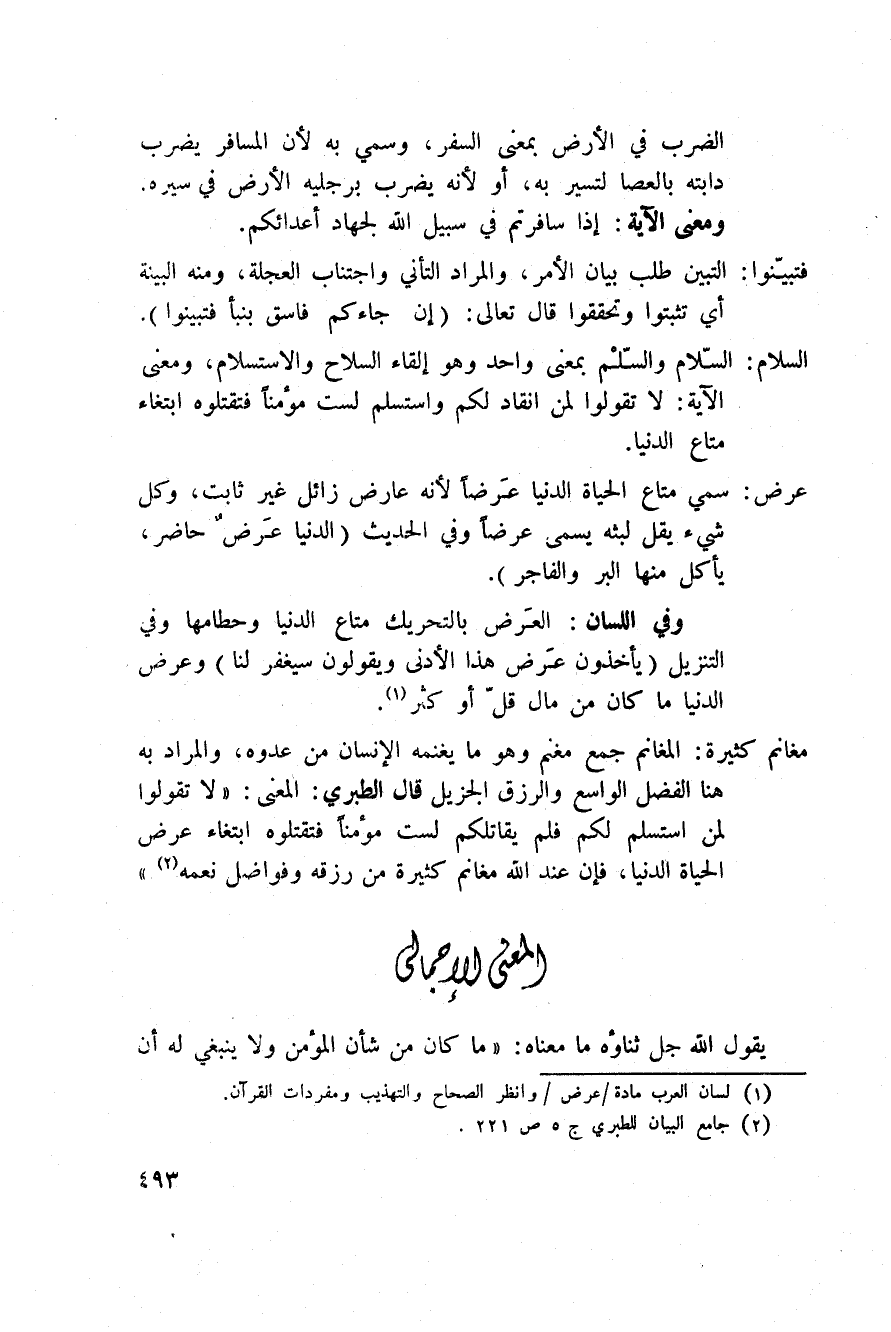 الضرب في الأرض بمعنى السفر، وسمي به لأن المسافر يضرب
دابته بالعصا لتسير به، أو لأنه يضرب برجليه الأرض في سيره.
ومعنى الآية : إذا سافرتم في سبيل الله لجهاد أعدائكم.
فتبيّنوا: التبين طلب بيان الأمر، والمراد التأني واجتناب العجلة، ومنه البينة
أي تثبتوا وتحققوا قال تعالى: (إن جاءكم فاسق بنبأ فتبينوا).
السلام: السّلام والسّلْم بمعنى واحد وهو إلقاء السلاح والاستسلام، ومعنى
الآية: لا تقولوا لمن انقاد لكم واستسلم لست مؤمناً فتقتلوه ابتغاء
متاع الدنيا.
عرض: سمي متاع الحياة الدنيا عَرضاً لأنه عارض زائل غير ثابت، وكل
شيء يقل لبثه يسمى عرضاً وفي الحديث (الدنيا عَرضٌ حاضر،
يأكل منها البر والفاجر).
وفي اللسان : العَرض بالتحريك متاع الدنيا وحطامها وفي
التنزيل (يأخذون عَرض هذا الأدنى ويقولون سيغفر لنا) وعرض
الدنيا ما كان من مال قلّ أو كثُر(١).
مغانم كثيرة: المغانم جمع مغنم وهو ما يغنمه الإنسان من عدوه، والمراد به
هنا الفضل الواسع والرزق الجزيل قال الطبري : المعنى : « لا تقولوا
لمن استسلم لكم فلم يقاتلكم لست مؤمناً فتقتلوه ابتغاء عرض
الحياة الدنيا، فإن عند الله مغانم كثيرة من رزقه وفواضل نعمه(٢) »
المعنى الإجمالي
يقول الله جل ثناؤه ما معناه: « ما كان من شأن المؤمن ولا ينبغي له أن
(١) لسان العرب مادة /عرض / وانظر الصحاح والتهذيب ومفردات القرآن.
(٢) جامع البيان للطبري ج ٥ ص ٢٢١ .
٤٩٣